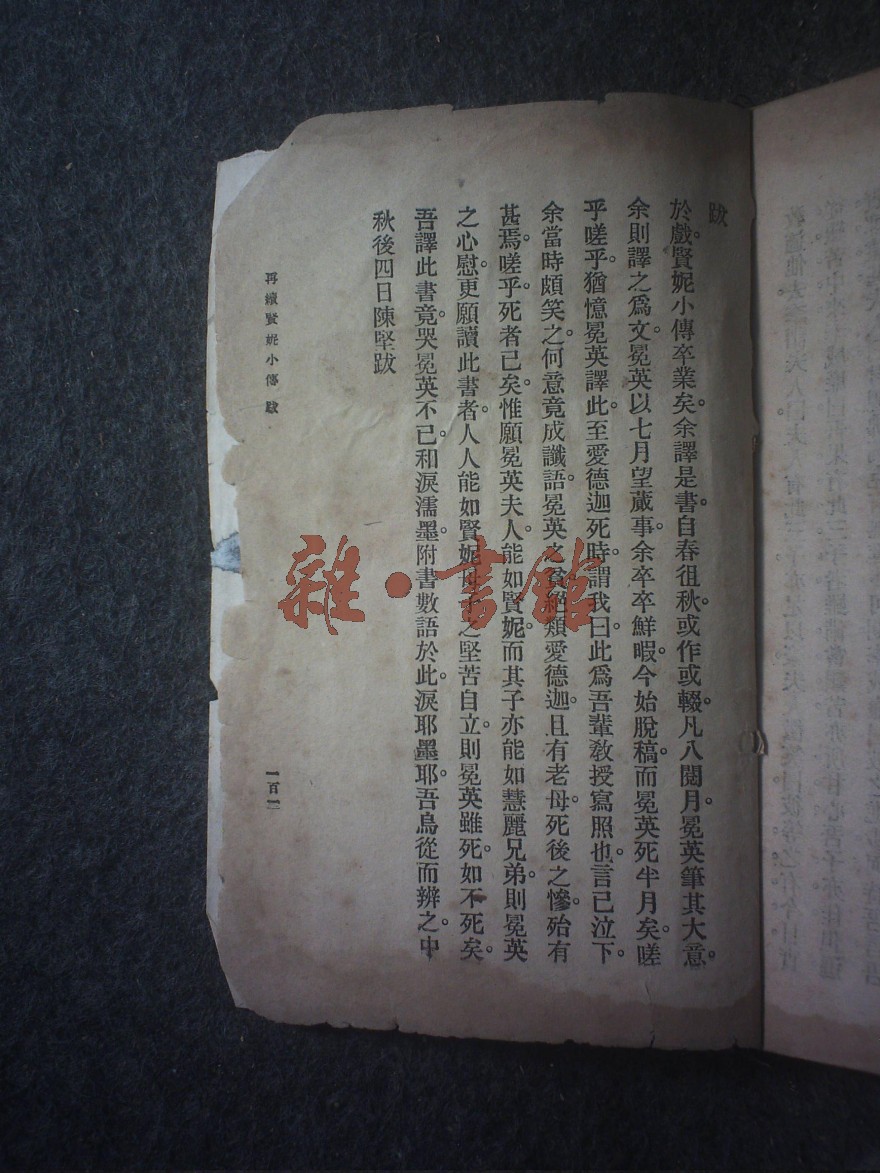 跋
於戲賢妮小傳卒業矣。余譯是書。自春徂秋。或作或輟。凡八閱月。冕英筆其大意。
余則譯之爲文。冕英以七月望蕆事。余卒卒鮮暇。今始脫稿。而冕英死半月矣。嗟
乎嗟乎。猶憶冕英譯此。至愛德迦死時。謂我曰。此爲吾輩敎授寫照也。言已泣下。
余當時頗笑之。何意竟成讖語。冕英之貧。絕類愛德迦。且有老母。死後之慘。殆有
甚焉。嗟乎。死者已矣。惟願冕英夫人。能如賢妮。而其子亦能如慧麗兄弟。則冕英
之心慰。更願讀此書者。人人能如賢妮母子之堅苦自立。則冕英雖死。如不死矣。
吾譯此書竟。哭冕英不已。和淚濡墨。附書數語於此。淚耶墨耶。吾烏從而辨之。中
秋後四日陳堅跋
再續賢妮小傳 跋
一百一
雜·書館